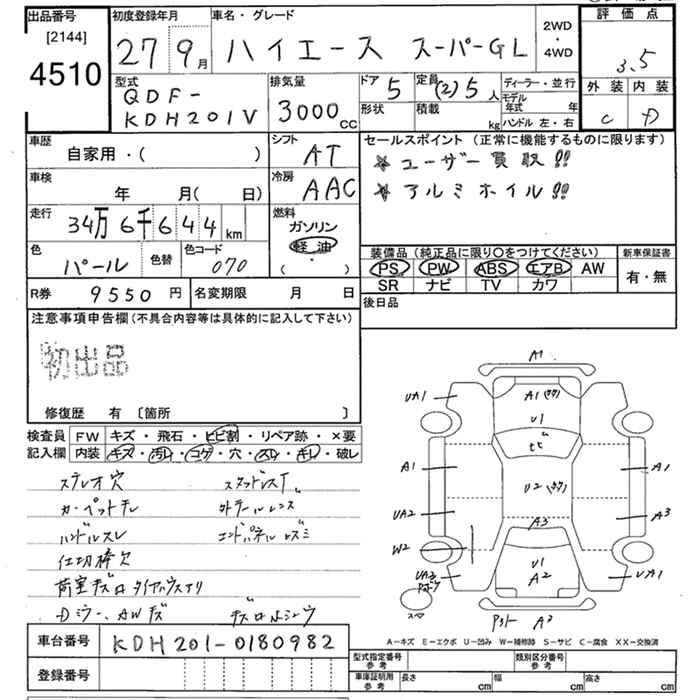 出品番号
[2144]
4510
初度登録年月
27 9月
車名・グレード
ハイエース スーパーGL
2WD
・
4WD
評価点
3.5
外装 内装
C D
型式
QDF-
KDH201V
排気量
3000cc
ドア 5
定員 (2)5人
形状
積載 kg
ディーラー・並行
モデル年式 年
ハンドル 左・右
車歴
自家用・( )
シフト
AT
車検
年 月( 日)
冷房
AAC
走行
34万6千644km
燃料
ガソリン
軽油
( ・ )
色
パール
色替
色コード
070
R券 9550円
名変期限 月 日
セールスポイント (正常に機能するものに限ります)
★ユーザー買取!!
★アルミホイル!!
装備品 (純正品に限り〇をつけてください)
PS PW ABS エアB AW
SR ナビ TV カワ
新車保証書
有・無
後日品
注意事項申告欄(不具合内容等は具体的に記入して下さい)
初出品
修復歴 有 〔箇所 〕
検査員記入欄
FW キズ・飛石・ヒビ割・リペア跡・×要
内装 キズ・汚レ・コゲ・穴・スレ・キレ・破レ
ステレオ穴
カーペット汚レ
ハンドルスレ
仕切棒欠
スタッドレスT
外テールレンズ
エンドパネル
荷室キズ
Dミラー、AWキズ
A1
A1
U1
UA1
A1
A1
U2
UA2
A3
A3
W2
U1
A2
UA1
A2
A-キズ E-エクボ U-凹み W-補修跡 S-サビ C-腐食 XX-交換済
車台番号 KDH201-0180982
登録番号
型式指定番号 参考
類別区分番号 参考
車庫証明用 参考
長さ cm
幅 cm
高さ cm